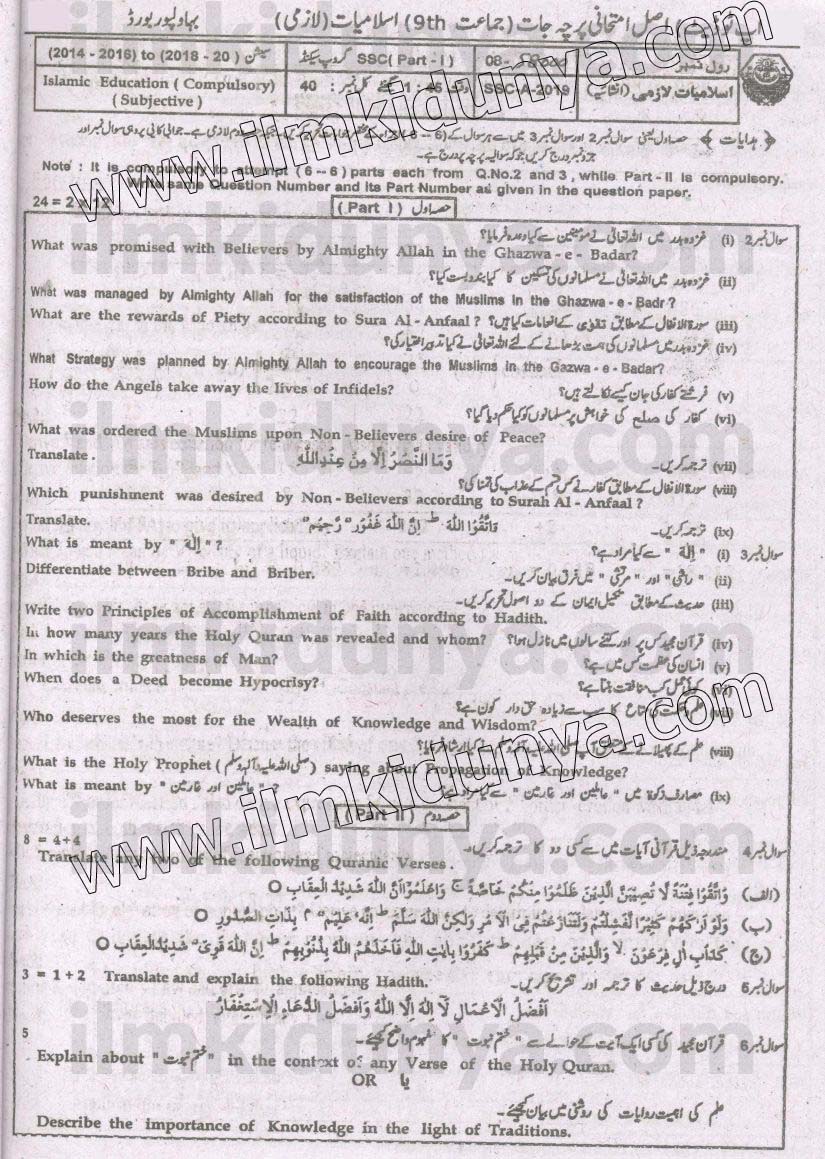 اصل امتحانی پرچہ جات (جماعت 9th) اسلامیات (لازمی) بہاولپور بورڈ
رول نمبر 08- SSC( Part - I ) گروپ سیکنڈ سیشن (2014 - 2016) to (2018 - 20)
اسلامیات لازمی (انشائیہ) SSC-A-2019 وقت 1 : 45 گھنٹے کل نمبر : 40 Islamic Education ( Compulsory) ( Subjective )
﴿ ہدایات ﴾ حصہ اول یعنی سوال نمبر 2 اور سوال نمبر 3 میں سے ہر سوال کے (6 -- 6)
Note : It is compulsory to attempt ( 6 -- 6 ) parts each from Q.No.2 and 3 , while Part - II is compulsory.
Write same Question Number and its Part Number as given in the question paper.
24 = 2 x 12 ( Part I ) حصہ اول
سوال نمبر 2 (i) غزوہ بدر میں اللہ تعالیٰ نے مومنین سے کیا وعدہ فرمایا؟
What was promised with Believers by Almighty Allah in the Ghazwa - e - Badar?
(ii) غزوہ بدر میں اللہ تعالیٰ نے مسلمانوں کی تسکین کا کیا بندوبست کیا؟
What was managed by Almighty Allah for the satisfaction of the Muslims in the Ghazwa - e - Badr ?
What are the rewards of Piety according to Sura Al - Anfaal ? (iii) سورۃ الانفال کے مطابق تقویٰ کے انعامات کیا ہیں؟
(iv) غزوہ بدر میں مسلمانوں کی ہمت بڑھانے کے لئے اللہ تعالیٰ نے کیا تدبیر اختیار کی؟
What Strategy was planned by Almighty Allah to encourage the Muslims in the Gazwa - e - Badar?
How do the Angels take away the lives of Infidels? (v) فرشتے کفار کی جان کیسے نکالتے ہیں؟
(vi) کفار کی صلح کی خواہش پر مسلمانوں کو کیا حکم دیا گیا؟
What was ordered the Muslims upon Non - Believers desire of Peace?
Translate . وَمَا النَّصْرُ اِلَّا مِنْ عِنْدِ اللّٰهِ (vii) ترجمہ کریں۔
(viii) سورۃ الانفال کے مطابق کفار نے کس قسم کے عذاب کی تمنا کی؟
Which punishment was desired by Non - Believers according to Surah Al - Anfaal ?
Translate. وَاتَّقُوا اللّٰهَ ؕ اِنَّ اللّٰهَ غَفُوْرٌ رَّحِيْمٌ (ix) ترجمہ کریں۔
What is meant by " اِلٰهَ " ? سوال نمبر 3 (i) " اِلٰهَ " سے کیا مراد ہے؟
Differentiate between Bribe and Briber. (ii) " راشی " اور " مرتشی " میں فرق بیان کریں۔
(iii) حدیث کے مطابق تکمیل ایمان کے دو اصول تحریر کریں۔
Write two Principles of Accomplishment of Faith according to Hadith.
In how many years the Holy Quran was revealed and whom? (iv) قرآن مجید کس پر اور کتنے سالوں میں نازل ہوا؟
In which is the greatness of Man? (v) انسان کی عظمت کس میں ہے؟
When does a Deed become Hypocrisy? کوئی عمل کب منافقت بنتا ہے؟
سب سے زیادہ حق دار کون ہے؟
Who deserves the most for the Wealth of Knowledge and Wisdom?
(viii) علم کے پھیلانے کے
What is the Holy Prophet ( صلی اللہ علیہ وآلہ وسلم ) saying about Propagation of Knowledge?
What is meant by " عاملین اور غارمین " ? (ix) مصارف زکوٰۃ میں " عاملین اور غارمین " سے کیا مراد ہے؟
( Part II ) حصہ دوم
8 = 4+4 سوال نمبر 4 مندرجہ ذیل قرآنی آیات میں سے کسی دو کا ترجمہ کریں۔
Translate any two of the following Quranic Verses .
(الف) وَاتَّقُوْا فِتْنَةً لَّا تُصِيْبَنَّ الَّذِيْنَ ظَلَمُوْا مِنْكُمْ خَآصَّةً ۚ وَاعْلَمُوْا اَنَّ اللّٰهَ شَدِيْدُ الْعِقَابِ ○
(ب) وَلَوْ اَرٰكَهُمْ كَثِيْرًا لَّفَشِلْتُمْ وَلَتَنَازَعْتُمْ فِى الْاَمْرِ وَلٰكِنَّ اللّٰهَ سَلَّمَ ؕ اِنَّهٗ عَلِيْمٌۢ بِذَاتِ الصُّدُوْرِ ○
(ج) كَدَاْبِ اٰلِ فِرْعَوْنَ ۙ وَالَّذِيْنَ مِنْ قَبْلِهِمْ ؕ كَفَرُوْا بِاٰيٰتِ اللّٰهِ فَاَخَذَهُمُ اللّٰهُ بِذُنُوْبِهِمْ ؕ اِنَّ اللّٰهَ قَوِىٌّ شَدِيْدُ الْعِقَابِ ○
3 = 1 + 2 Translate and explain the following Hadith. سوال نمبر 5 درج ذیل حدیث کا ترجمہ اور تشریح کریں۔
اَفْضَلُ الْاَعْمَالِ لَا اِلٰهَ اِلَّا اللّٰهُ وَاَفْضَلُ الدُّعَاءِ الْاِسْتِغْفَارُ
5 سوال نمبر 6 قرآن مجید کی کسی ایک آیت کے حوالے سے " ختم نبوت " کا مفہوم واضح کیجئے۔
Explain about " ختم نبوت " in the context of any Verse of the Holy Quran.
OR یا
علم کی اہمیت روایات کی روشنی میں بیان کیجئے۔
Describe the importance of Knowledge in the light of Traditions.
www.ilmkidunya.com
www.ilmkidunya.com
ilmkidunya.com
ilmkidunya.com
ilmkidunya.com
ilmkidunya.com
ilmkidunya.com